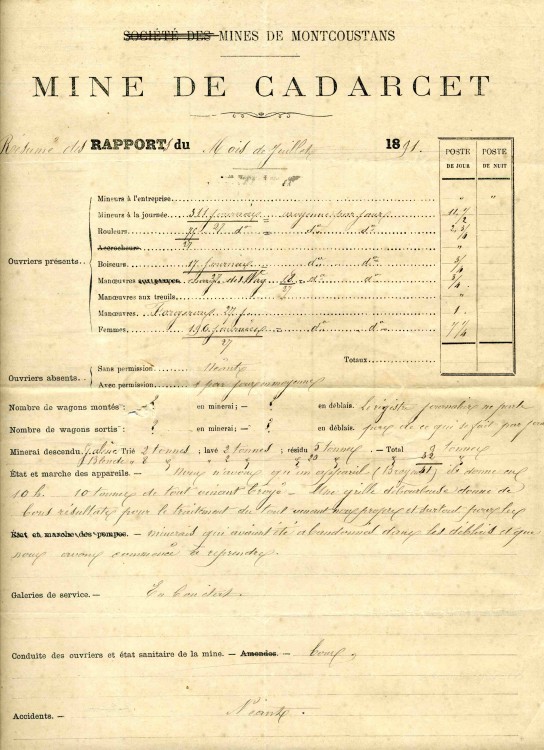 SOCIÉTÉ DES MINES DE MONTCOUSTANS
MINE DE CADARCET
Résumé des RAPPORTS du Mois de Juillet 1891.
POSTE DE JOUR POSTE DE NUIT
Ouvriers présents
Mineurs à l'entreprise " "
Mineurs à la journée 311 journées = moyenne par jour 11 1/2
27
Rouleurs 75 = do do 2 3/4
27
Accrocheurs "
Boiseurs 17 journées = do do 3/4
27
Manœuvres do do 3/4
27
Manœuvres aux treuils "
Manœuvres. Forgerons 27 j. 1
Femmes 196 journées = do do 7 1/4
27
Totaux
Ouvriers absents
Sans permission Néant
Avec permission 1 par jour en moyenne
Nombre de wagons montés: ? en minerai; — ? en déblais. Le registre journalier ne porte
Nombre de wagons sortis: ? en minerai; — ? en déblais. pas de ce qui se fait par jour
Minerai descendu. Galène Trié 2 tonnes; lavé 2 tonnes; résidu 5 tonnes — Total 9 tonnes
Blende
État et marche des appareils. — Nous n'avons qu'un appareil (Broyeur) il donne en
10 h. 10 tonnes de tout venant broyé — Une grille débourbeuse donne de
bons résultats pour le traitement du tout venant et surtout pour les
État et marche des pompes. — minerais qui avaient été abandonnés dans les déblais et que
nous avons commencé à reprendre.
Galeries de service. — En bon état.
Conduite des ouvriers et état sanitaire de la mine. — Amendes. — bons
Accidents. — Néant.